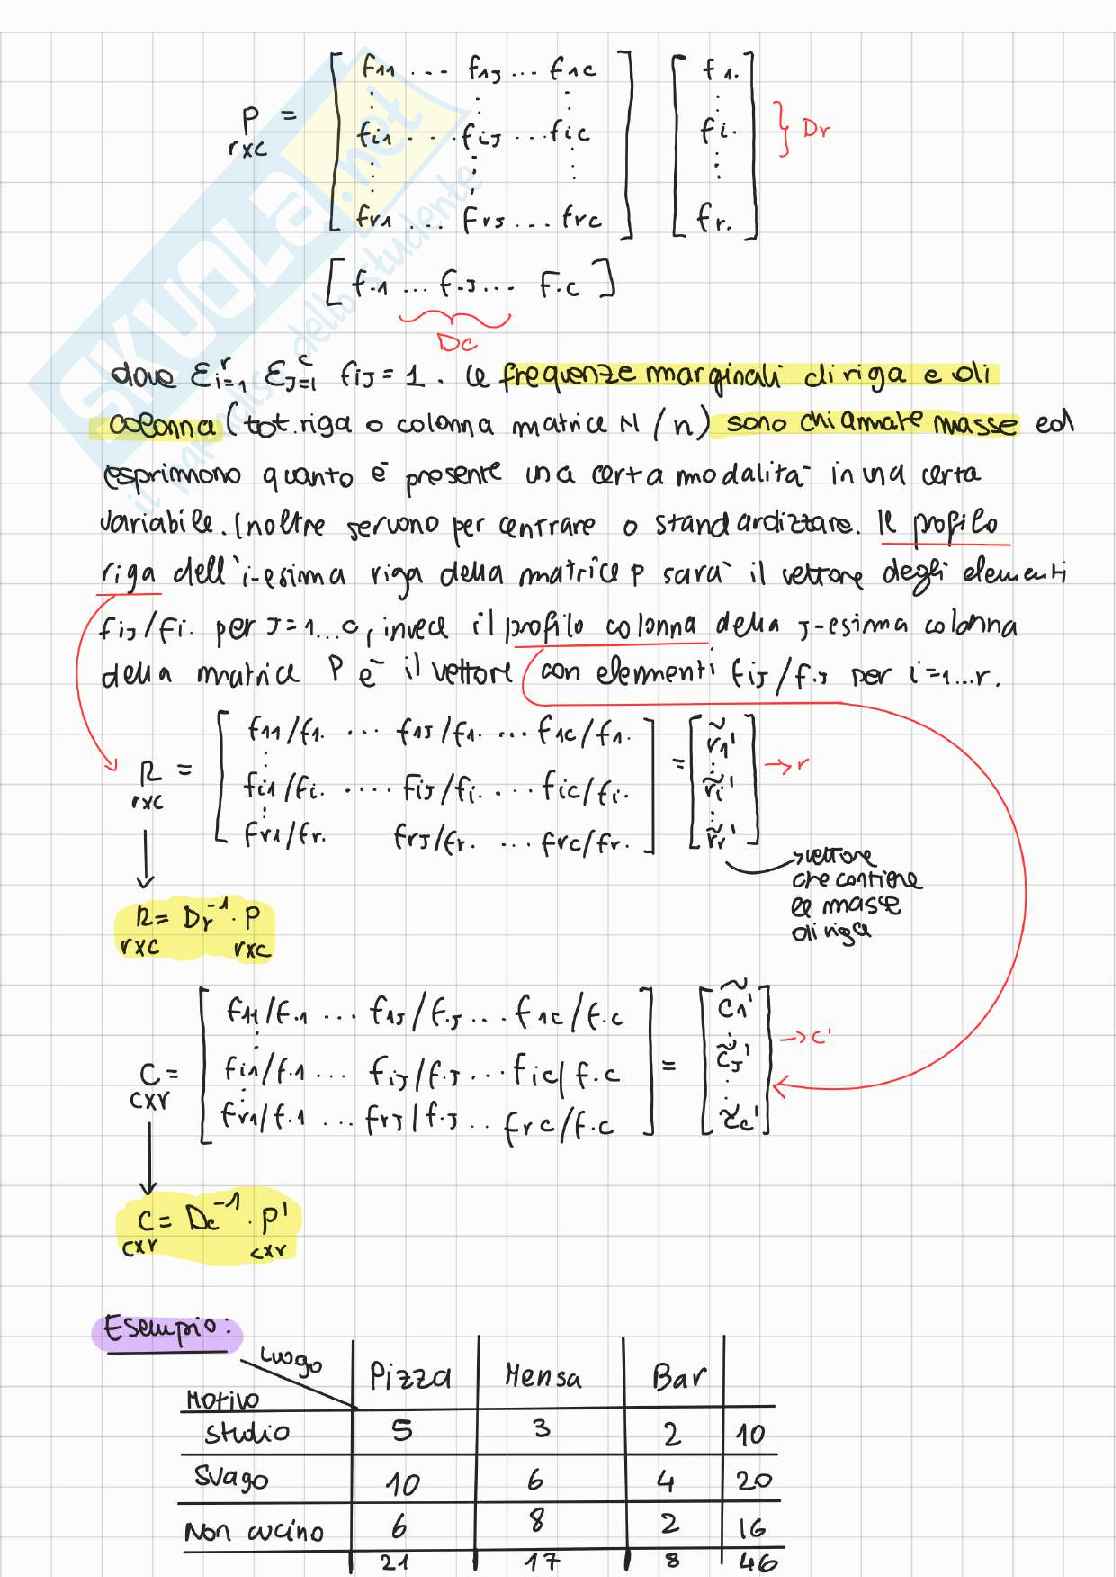 P rxc = [ f11 ... f1J ... f1c ] [ f1. ]
[ fi1 ... fiJ ... fic ] [ fi. ] } Dr
[ fr1 ... frJ ... frc ] [ fr. ]
[ f.1 ... f.J ... f.c ]
Dc
SKUOLA.net
il paradiso dello studente
dove Σi=1^r ΣJ=1^c fiJ = 1. le frequenze marginali di riga e di
colonna (tot. riga o colonna matrice N / n) sono chiamate masse ed
esprimono quanto è presente una certa modalità in una certa
variabile. Inoltre servono per centrare o standardizzare. Il profilo
riga dell'i-esima riga della matrice P sarà il vettore degli elementi
fiJ/fi. per J=1...c, invece il profilo colonna della J-esima colonna
della matrice P è il vettore con elementi fiJ/f.J per i=1...r.
R rxc = [ f11/f1. ... f1J/f1. ... f1c/f1. ] = [ r̃1' ]
[ fi1/fi. .... fiJ/fi. .... fic/fi. ] [ r̃i' ] → r
[ fr1/fr. frJ/fr. ... frc/fr. ] [ r̃r' ]
→ vettore
che contiene
le masse
di riga
R = Dr^-1 · P
rxc rxc
C cxr = [ f11/f.1 ... f1J/f.J ... f1c/f.c ] = [ c̃1' ]
[ fi1/f.1 ... fiJ/f.J ... fic/f.c ] [ c̃J' ] → c'
[ fr1/f.1 ... frJ/f.J .. frc/f.c ] [ c̃c' ]
C = Dc^-1 · P'
cxr cxr
Esempio:
Luogo Pizza Mensa Bar
Motivo
studio 5 3 2 10
Svago 10 6 4 20
Non cucino 6 8 2 16
21 17 8 46